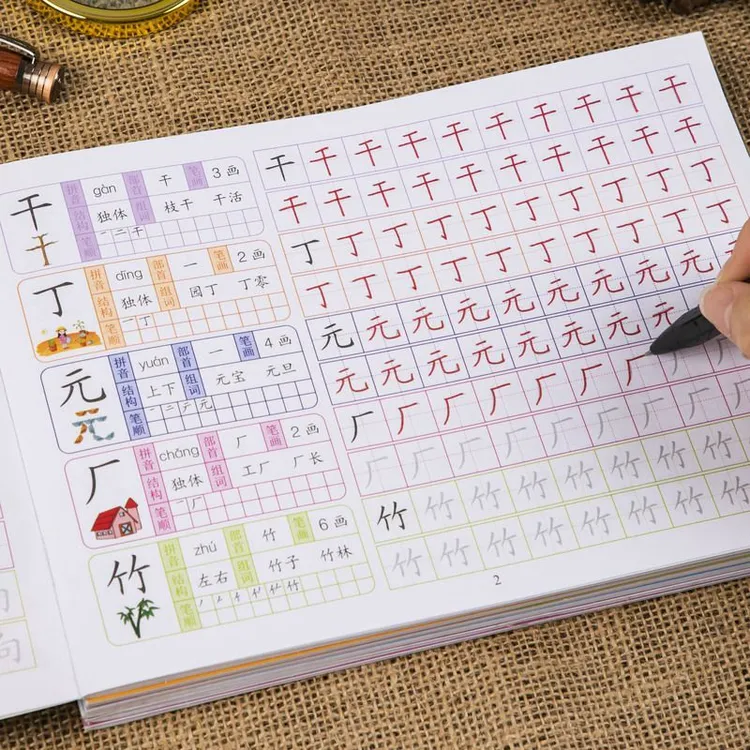 干 拼音 gàn 部首 干 笔画 3画
结构 独体 组词 枝干 干活
笔顺 一 二 干
丁 拼音 dīng 部首 一 笔画 2画
结构 独体 组词 园丁 丁零
笔顺 一 丁
元 拼音 yuán 部首 一 笔画 4画
结构 上下 组词 元宝 元旦
笔顺 一 二 テ 元
元
厂 拼音 chǎng 部首 厂 笔画 2画
结构 独体 组词 工厂 厂长
笔顺 一 厂
竹 拼音 zhú 部首 竹 笔画 6画
结构 左右 组词 竹子 竹林
笔顺
干 干 干 干 干 干 干 干 干 干
干 干 干 干 干 干 干 干 干 干
丁 丁 丁 丁 丁 丁 丁 丁 丁 丁
丁 丁 丁 丁 丁 丁 丁 丁 丁 丁
元 元 元 元 元 元 元 元 元
元 元 元 元 元 元 元 元
厂 厂 厂 厂 厂 厂 厂 厂 厂
厂 厂 厂 厂 厂 厂 厂 厂 厂
竹 竹 竹 竹 竹 竹 竹 竹
竹 竹 竹 竹 竹 竹 竹 竹
2
向